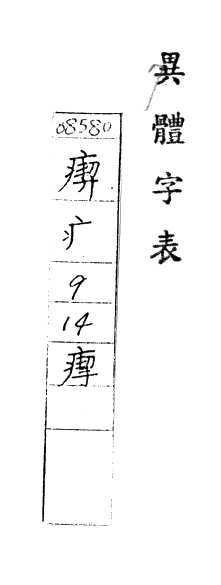 異體字表
08580
瘈
疒
9
14